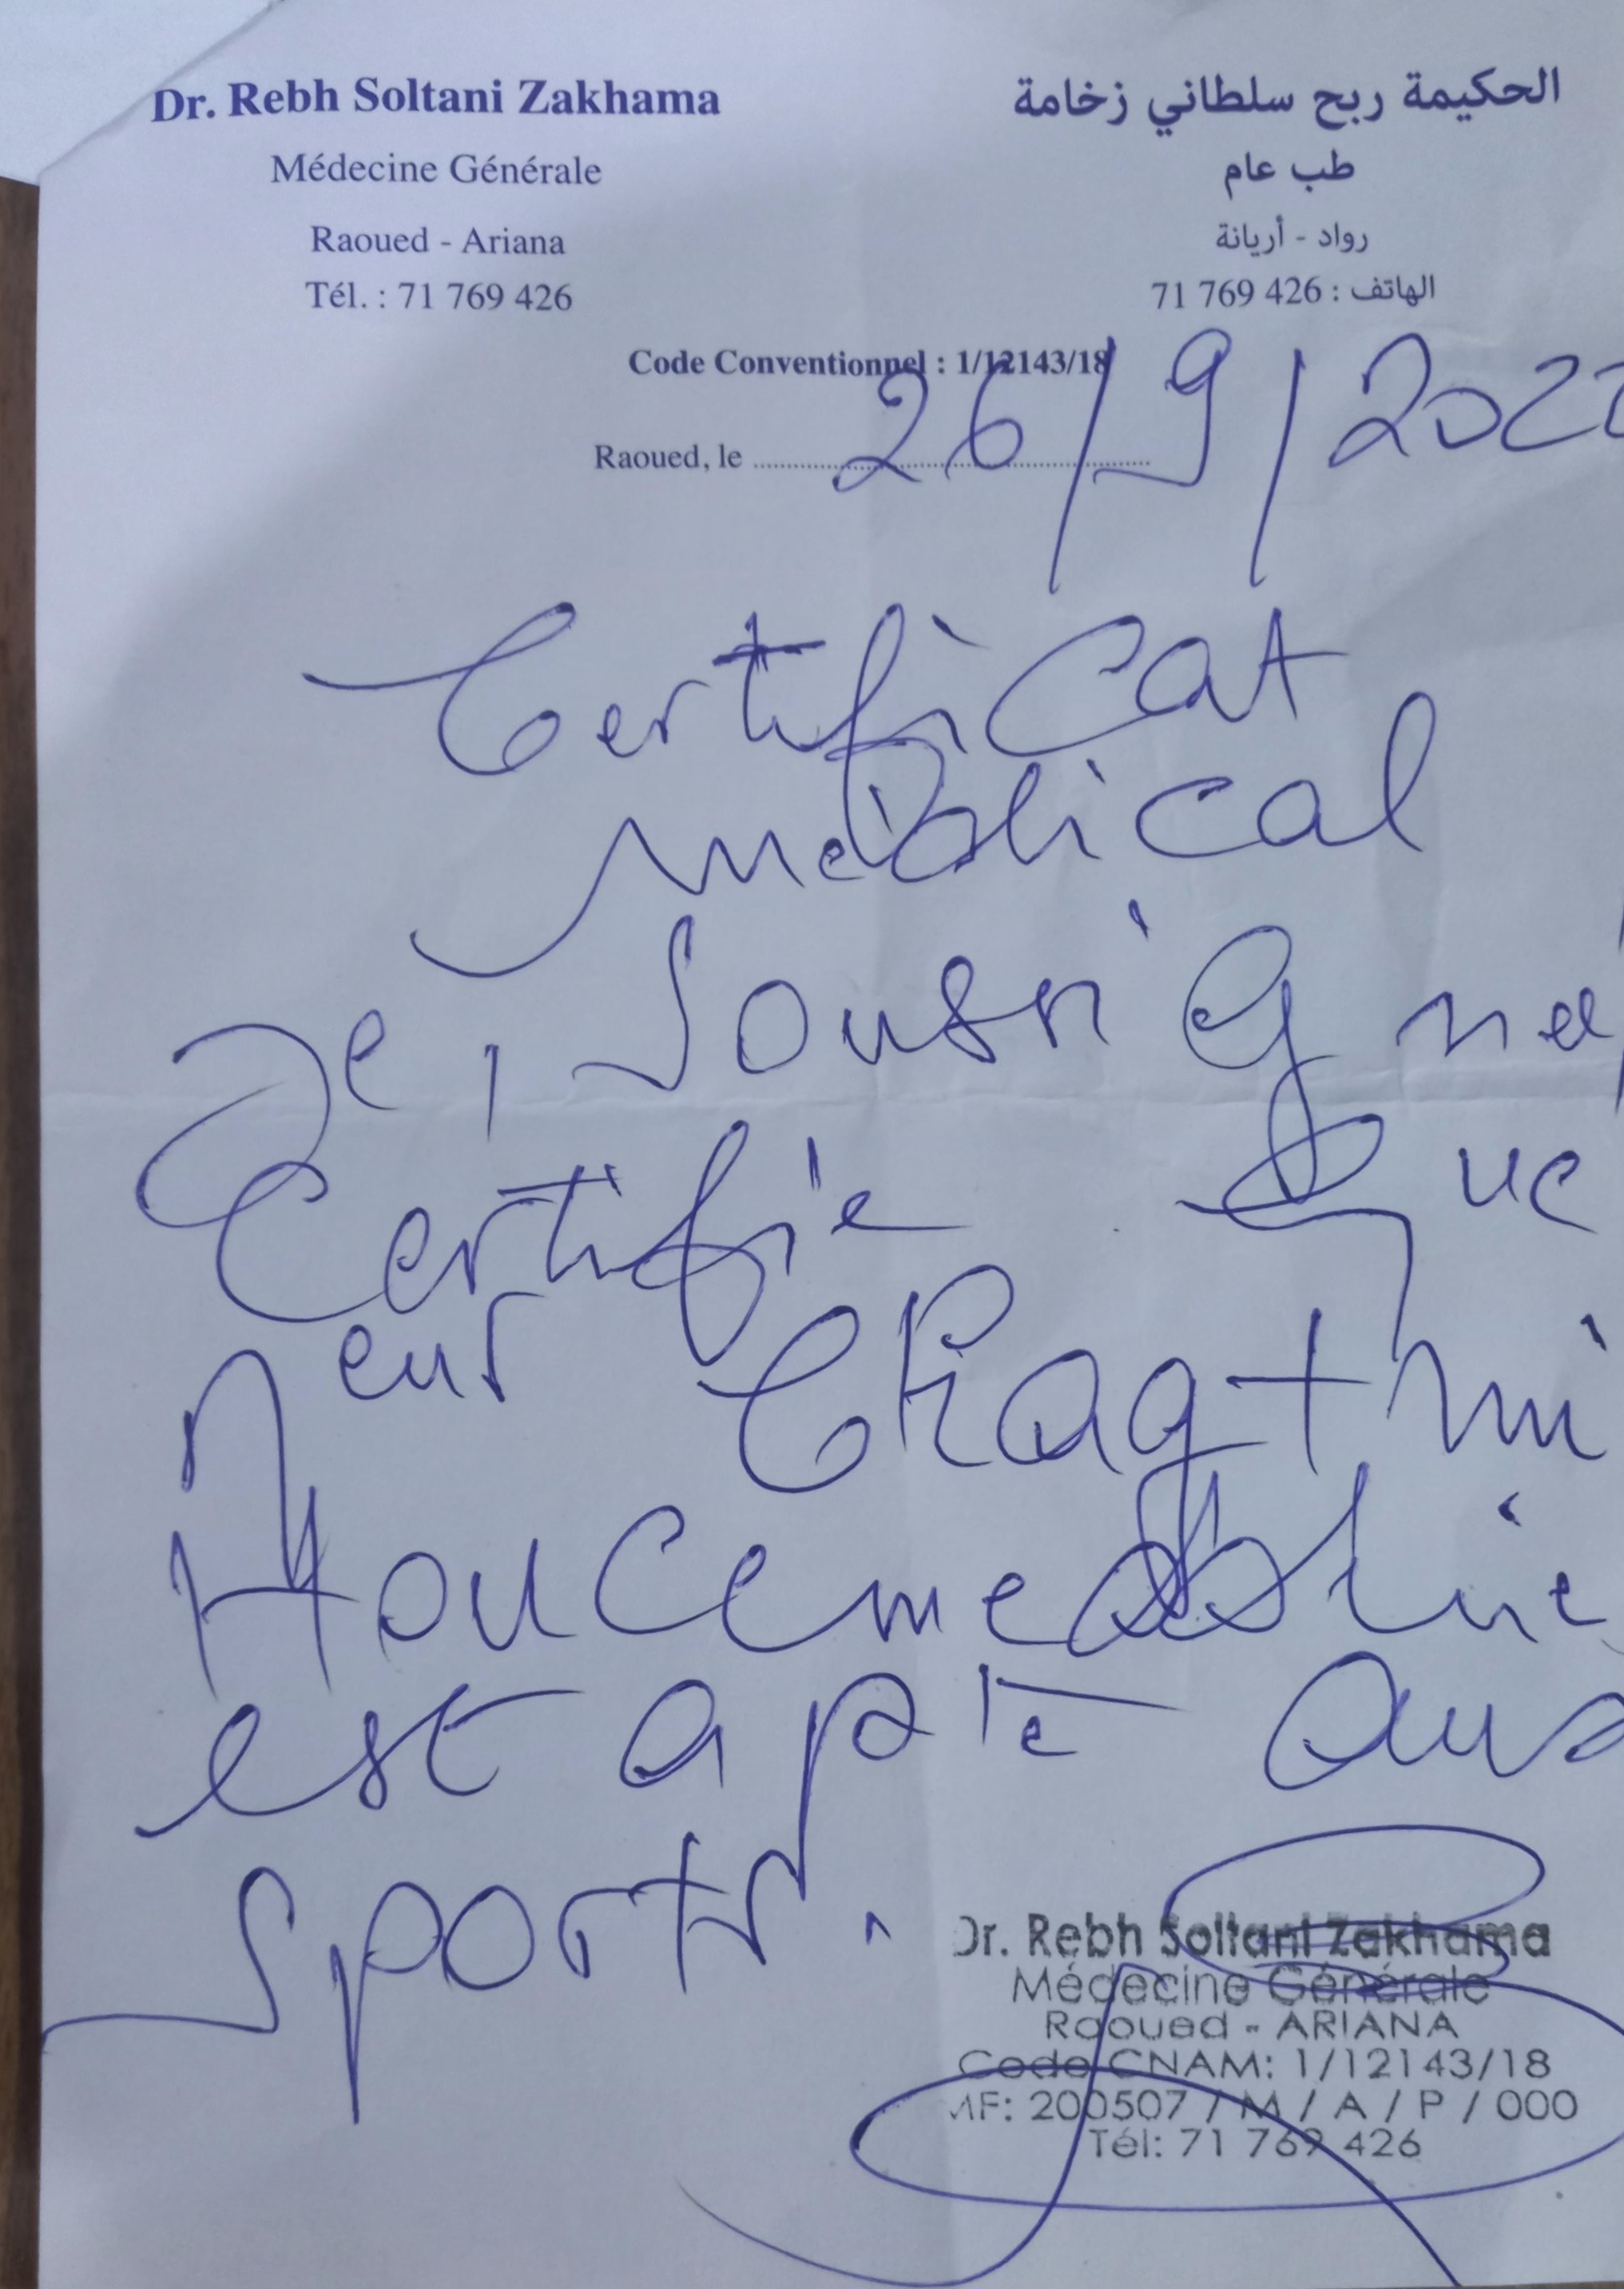 Dr. Rebh Soltani Zakhama
Médecine Générale
Raoued - Ariana
Tél. : 71 769 426
الحكيمة ربح سلطاني زخامة
طب عام
رواد - أريانة
الهاتف : 426 769 71
Code Conventionnel : 1/12143/18
Raoued, le 26/9/202
Certificat
médical
Je, Soussigné,
Certifie que
Meur Chagtmi
Houcemeddine
est apte aux
sports.
Dr. Rebh Soltani Zakhama
Médecine Générale
Raoued - ARIANA
Code CNAM: 1/12143/18
MF: 200507 / M / A / P / 000
Tél: 71 769 426